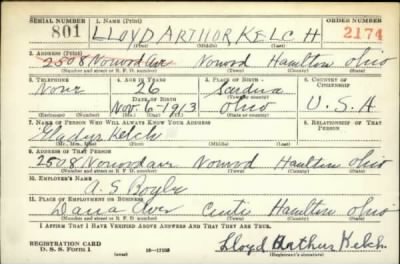 SERIAL NUMBER 1. NAME (Print) ORDER NUMBER
801 LLOYD ARTHUR KELCH 2174
(First) (Middle) (Last)
2. ADDRESS (Print)
2508 Norwood Ave Norwood Hamilton Ohio
(Number and street or R. F. D. number) (Town) (County) (State)
3. TELEPHONE 4. AGE IN YEARS 5. PLACE OF BIRTH 6. COUNTRY OF CITIZENSHIP
None 26 Sardina U.S.A
DATE OF BIRTH (Town or county)
Nov. 6-1913 Ohio
(Mo.) (Day) (Yr.) (State or country)
7. NAME OF PERSON WHO WILL ALWAYS KNOW YOUR ADDRESS 8. RELATIONSHIP OF THAT PERSON
Gladys Kelch
(Mr., Mrs., Miss) (First) (Middle) (Last)
9. ADDRESS OF THAT PERSON
2508 Norwood ave Norwood Hamilton Ohio
(Number and street or R. F. D. number) (Town) (County) (State)
10. EMPLOYER'S NAME
A. S. Boyle
11. PLACE OF EMPLOYMENT OR BUSINESS
Dana Ave Hamilton Ohio
(Number and street or R. F. D. number) (Town) (County) (State)
I AFFIRM THAT I HAVE VERIFIED ABOVE ANSWERS AND THAT THEY ARE TRUE.
REGISTRATION CARD
D. S. S. FORM 1
Lloyd Arthur Kelch
(Registrant's signature)